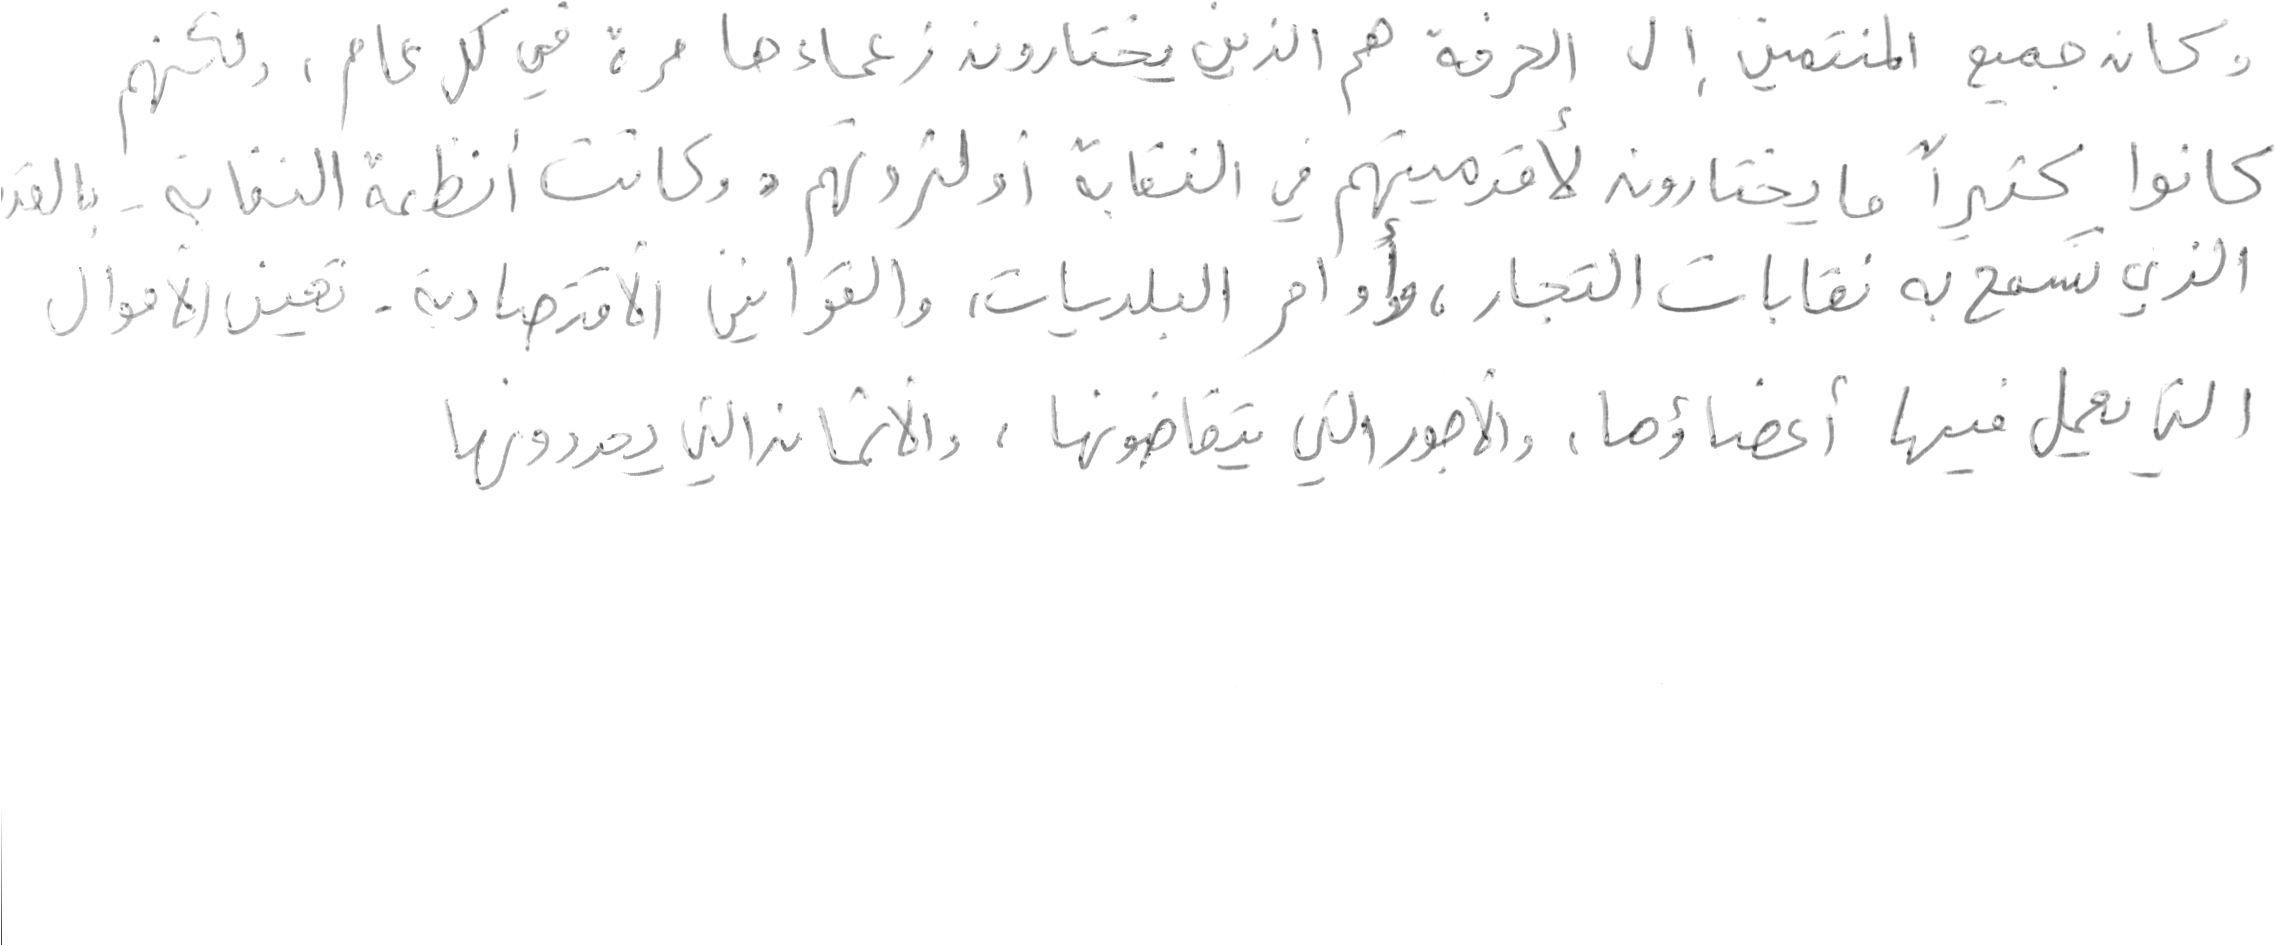 وكان جميع المنتمين إلى الحرفة هم الذين يختارون زعماءها مرة في كل عام، ولكنهم
كانوا كثيراً ما يختارون لأقدميتهم في النقابة أو لثروتهم. وكانت أنظمة النقابة - بالقدر
الذي تسمح به نقابات التجار، وأوامر البلديات، والقوانين الأقتصادية - تعين الأحوال
التي يعمل فيها أعضاؤها، والأجور التي يتقاضونها، والأثمان التي يحددونها